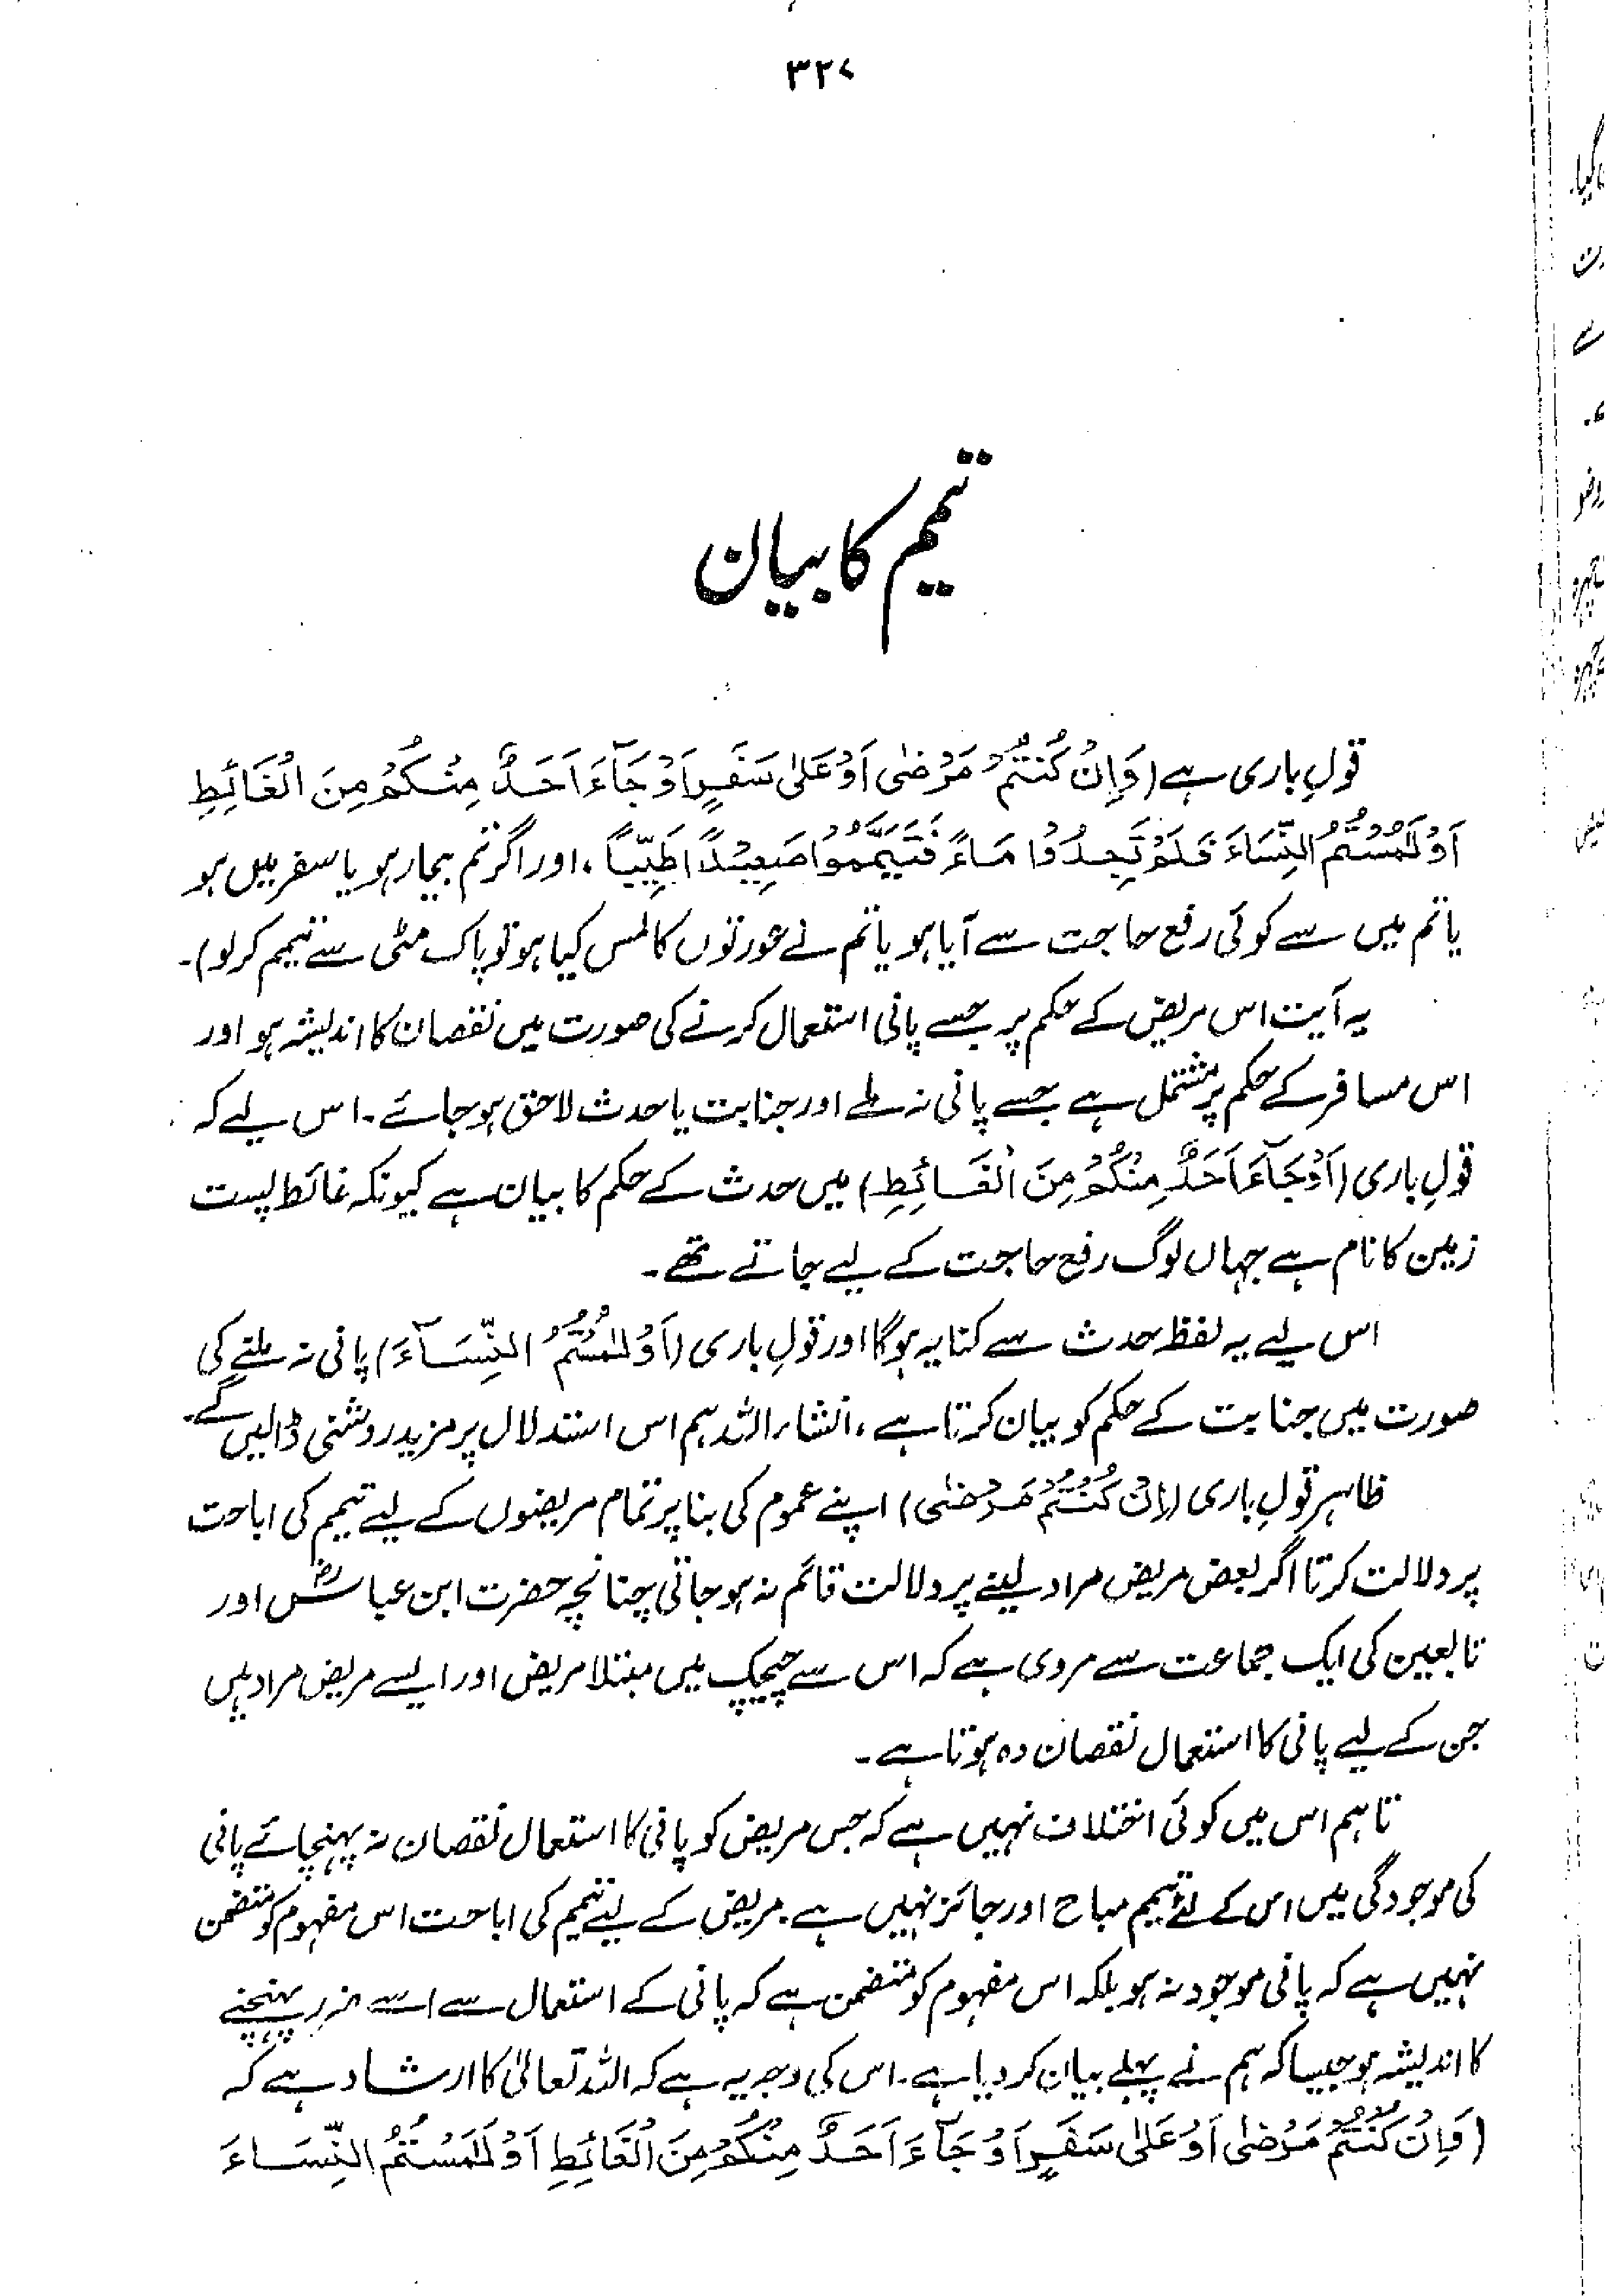 ۳۲۷
تیمم کا بیان
قولِ باری ہے (وَاِنْ كُنْتُمْ مَرْضٰى اَوْ عَلٰى سَفَرٍ اَوْ جَآءَ اَحَدٌ مِنْكُمْ مِنَ الْغَائِطِ
اَوْ لٰمَسْتُمُ النِّسَاءَ فَلَمْ تَجِدُوْا مَاءً فَتَيَمَّمُوْا صَعِيْدًا طَيِّبًا ، اور اگر تم بیمار ہو یا سفر میں ہو
یا تم میں سے کوئی رفع حاجت سے آیا ہو یا تم نے عورتوں کا لمس کیا ہو تو پاک مٹی سے تیمم کر لو)۔
یہ آیت اس مریض کے حکم پر جسے پانی استعمال کرنے کی صورت میں نقصان کا اندیشہ ہو اور
اس مسافر کے حکم پر مشتمل ہے جسے پانی نہ ملے اور جنابت یا حدث لاحق ہو جائے۔ اس لیے کہ
قولِ باری (اَوْ جَآءَ اَحَدٌ مِنْكُمْ مِنَ الْغَائِطِ) میں حدث کے حکم کا بیان ہے کیونکہ غائط پست
زمین کا نام ہے جہاں لوگ رفع حاجت کے لیے جاتے تھے۔
اس لیے یہ لفظ حدث سے کنایہ ہوگا اور قولِ باری (اَوْ لٰمَسْتُمُ النِّسَآءَ) پانی نہ ملنے کی
صورت میں جنابت کے حکم کو بیان کرتا ہے ، انشاء اللہ ہم اس استدلال پر مزید روشنی ڈالیں گے۔
ظاہر قولِ باری (اِنْ كُنْتُمْ مَرْضٰى) اپنے عموم کی بنا پر تمام مریضوں کے لیے تیمم کی اباحت
پر دلالت کرتا اگر بعض مریض مراد لینے پر دلالت قائم نہ ہو جاتی چنانچہ حضرت ابن عباسؓ اور
تابعین کی ایک جماعت سے مروی ہے کہ اس سے چیچک میں مبتلا مریض اور ایسے مریض مراد ہیں
جن کے لیے پانی کا استعمال نقصان دہ ہوتا ہے۔
تاہم اس میں کوئی اختلاف نہیں ہے کہ جس مریض کو پانی کا استعمال نقصان نہ پہنچائے پانی
کی موجودگی میں اس کے لئے تیمم مباح اور جائز نہیں ہے۔ مریض کے لیے تیمم کی اباحت اس مفہوم کو متضمن
نہیں ہے کہ پانی موجود نہ ہو بلکہ اس مفہوم کو متضمن ہے کہ پانی کے استعمال سے اسے ضرر پہنچنے
کا اندیشہ ہو جیسا کہ ہم نے پہلے بیان کر دیا ہے۔ اس کی وجہ یہ ہے کہ اللہ تعالیٰ کا ارشاد ہے کہ
(وَاِنْ كُنْتُمْ مَرْضٰى اَوْ عَلٰى سَفَرٍ اَوْ جَآءَ اَحَدٌ مِنْكُمْ مِنَ الْغَائِطِ اَوْ لٰمَسْتُمُ النِّسَاءَ